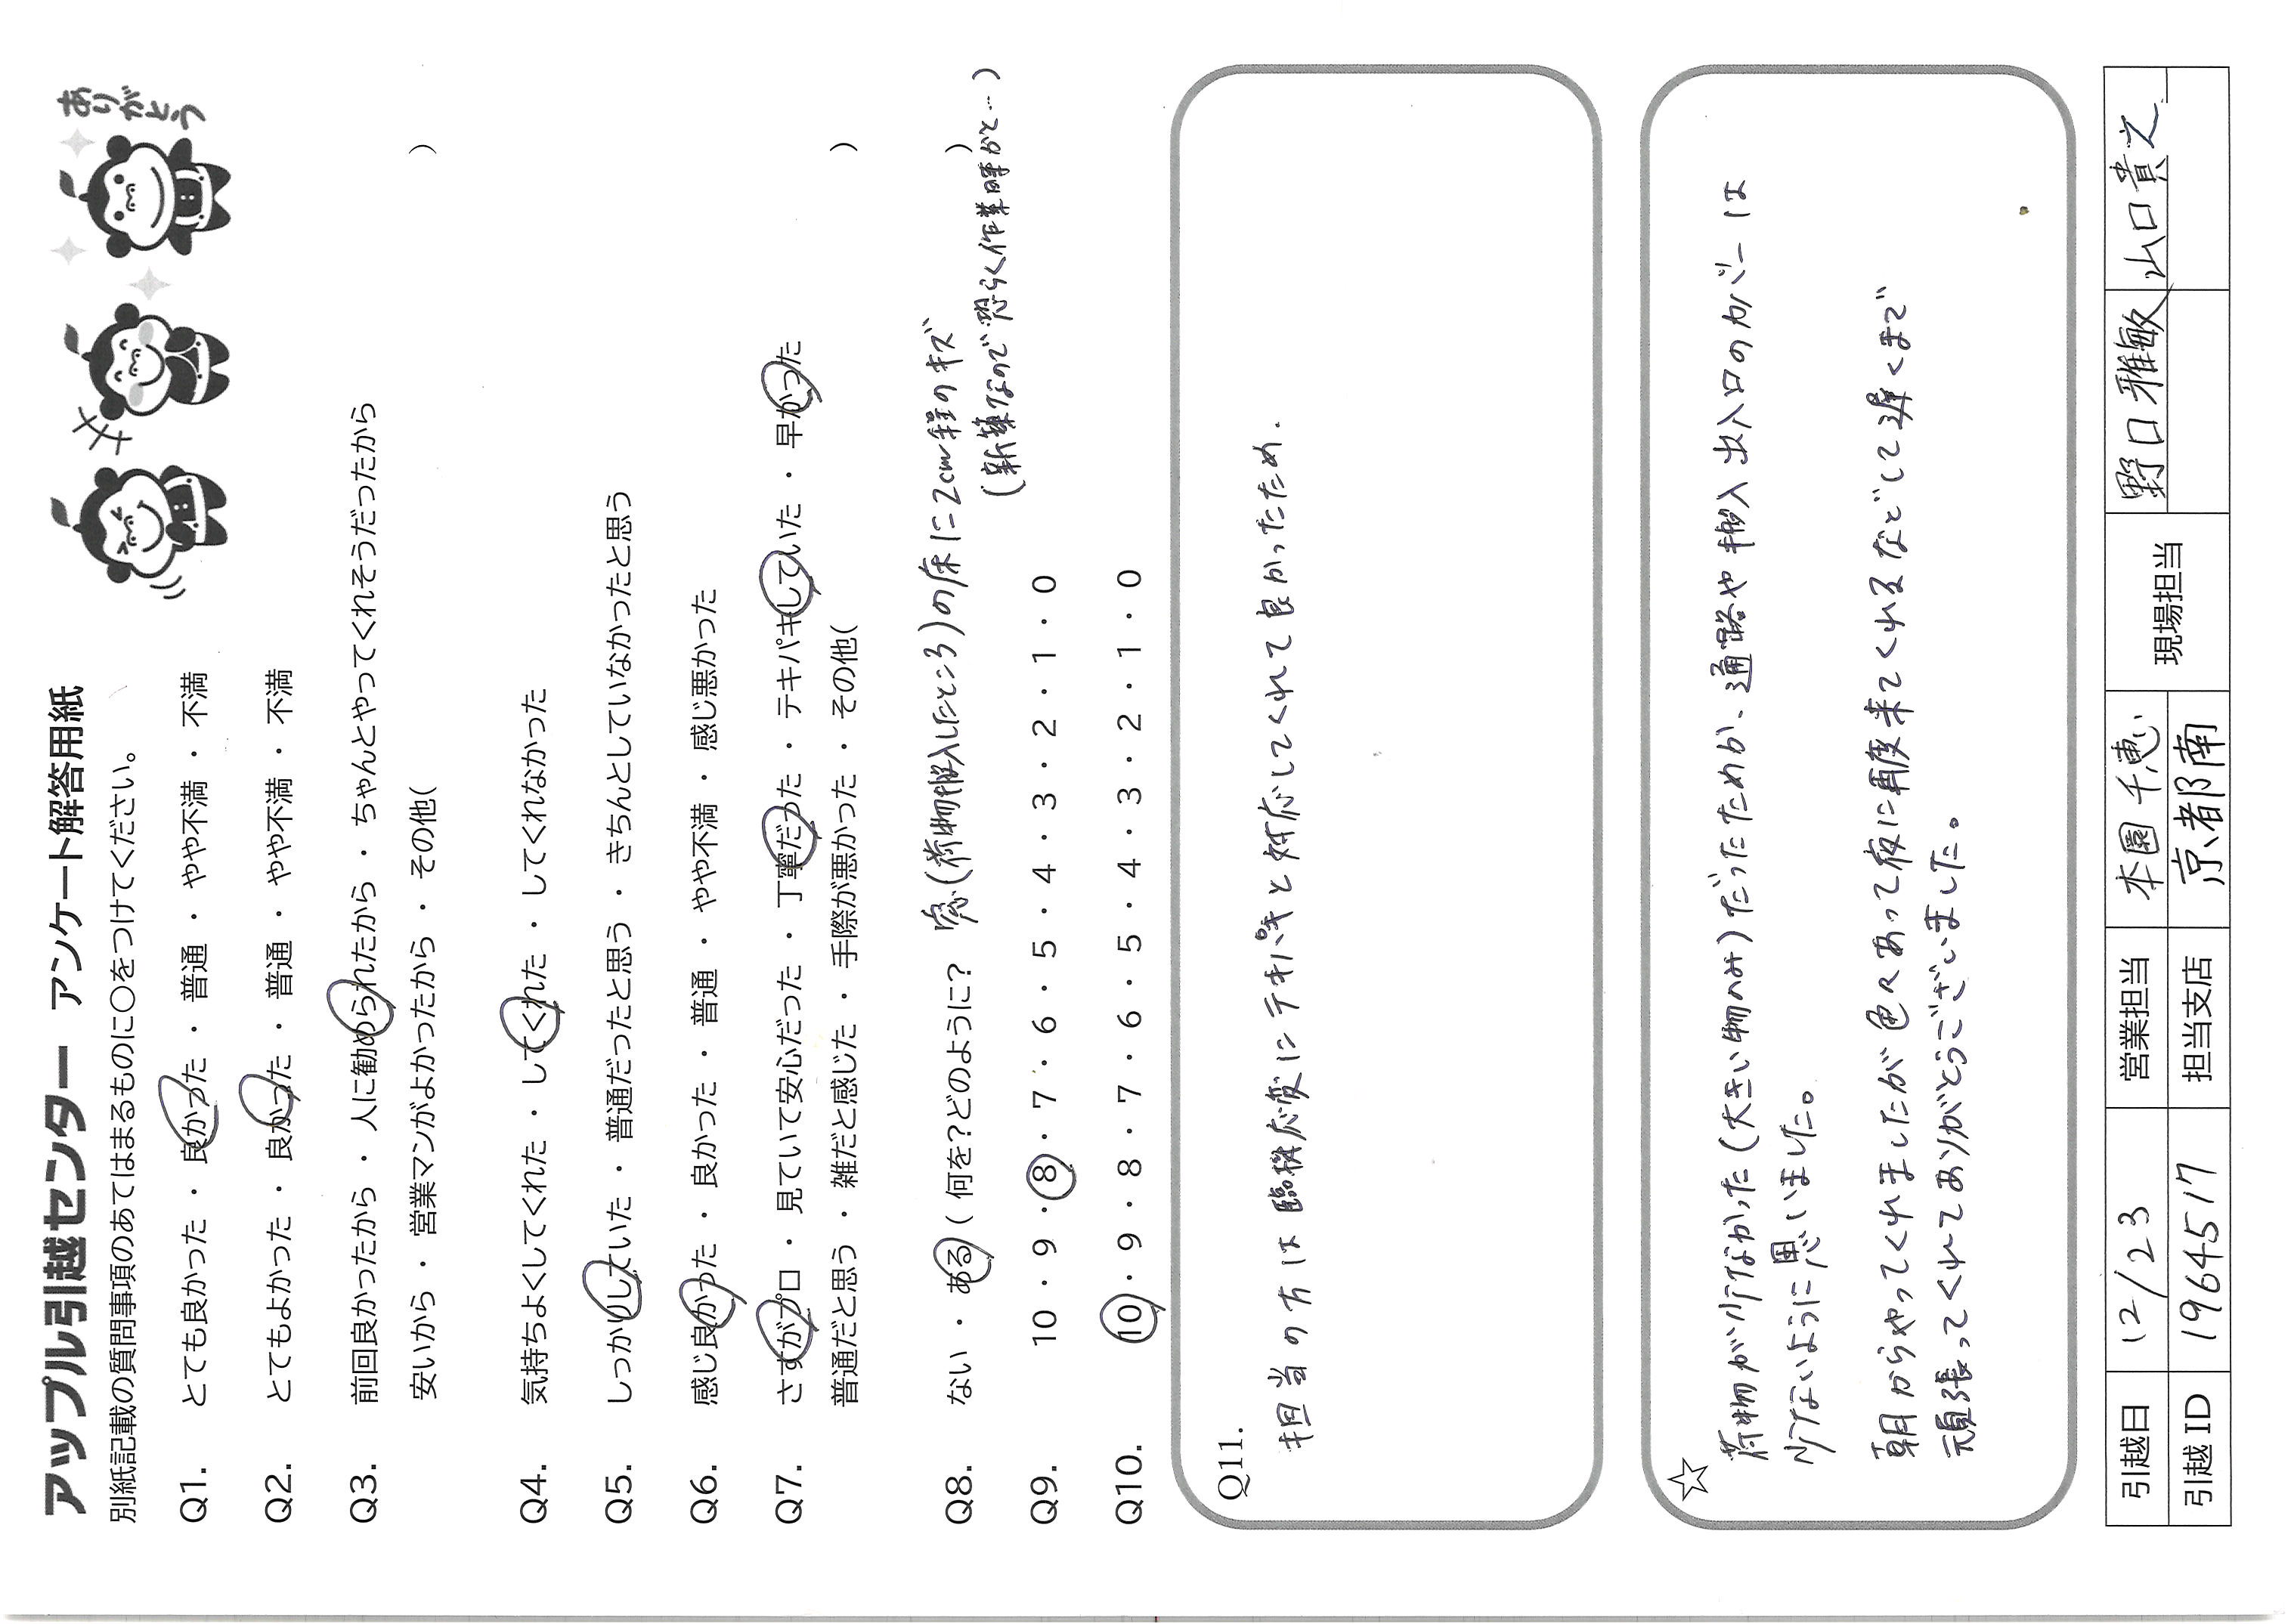 アップル引越センター アンケート解答用紙
ありがとう
別紙記載の質問事項のあてはまるものに〇をつけてください。
Q1. とても良かった ・ 良かった ・ 普通 ・ やや不満 ・ 不満
Q2. とてもよかった ・ 良かった ・ 普通 ・ やや不満 ・ 不満
Q3. 前回良かったから ・ 人に勧められたから ・ ちゃんとやってくれそうだったから
安いから ・ 営業マンがよかったから ・ その他( )
Q4. 気持ちよくしてくれた ・ してくれた ・ してくれなかった
Q5. しっかりしていた ・ 普通だったと思う ・ きちんとしていなかったと思う
Q6. 感じ良かった ・ 良かった ・ 普通 ・ やや不満 ・ 感じ悪かった
Q7. さすがプロ ・ 見ていて安心だった ・ 丁寧だった ・ テキパキしていた ・ 早かった
普通だと思う ・ 雑だと感じた ・ 手際が悪かった ・ その他( )
Q8. ない ・ ある ( 何を?どのように? 窓(荷物搬入したところ)の床に2cm程のキズ )
(新築なので恐らく作業時かと…)
Q9. 10 ・ 9 ・ 8 ・ 7 ・ 6 ・ 5 ・ 4 ・ 3 ・ 2 ・ 1 ・ 0
Q10. 10 ・ 9 ・ 8 ・ 7 ・ 6 ・ 5 ・ 4 ・ 3 ・ 2 ・ 1 ・ 0
Q11.
担当の方は臨機応変にテキパキと対応してくれて良かったため.
☆
荷物が少なかった(大きい物のみ)だったためか、通路や搬入出入口のカバーは
少ないように思いました。
朝からやってくれましたが色々あって夜に再度来てくれるなどして遅くまで
頑張ってくれてありがとうございました。
引越日 12/23 営業担当 本園千恵 現場担当 野口雅敏 山口貴之
引越ID 1964517 担当支店 京都南